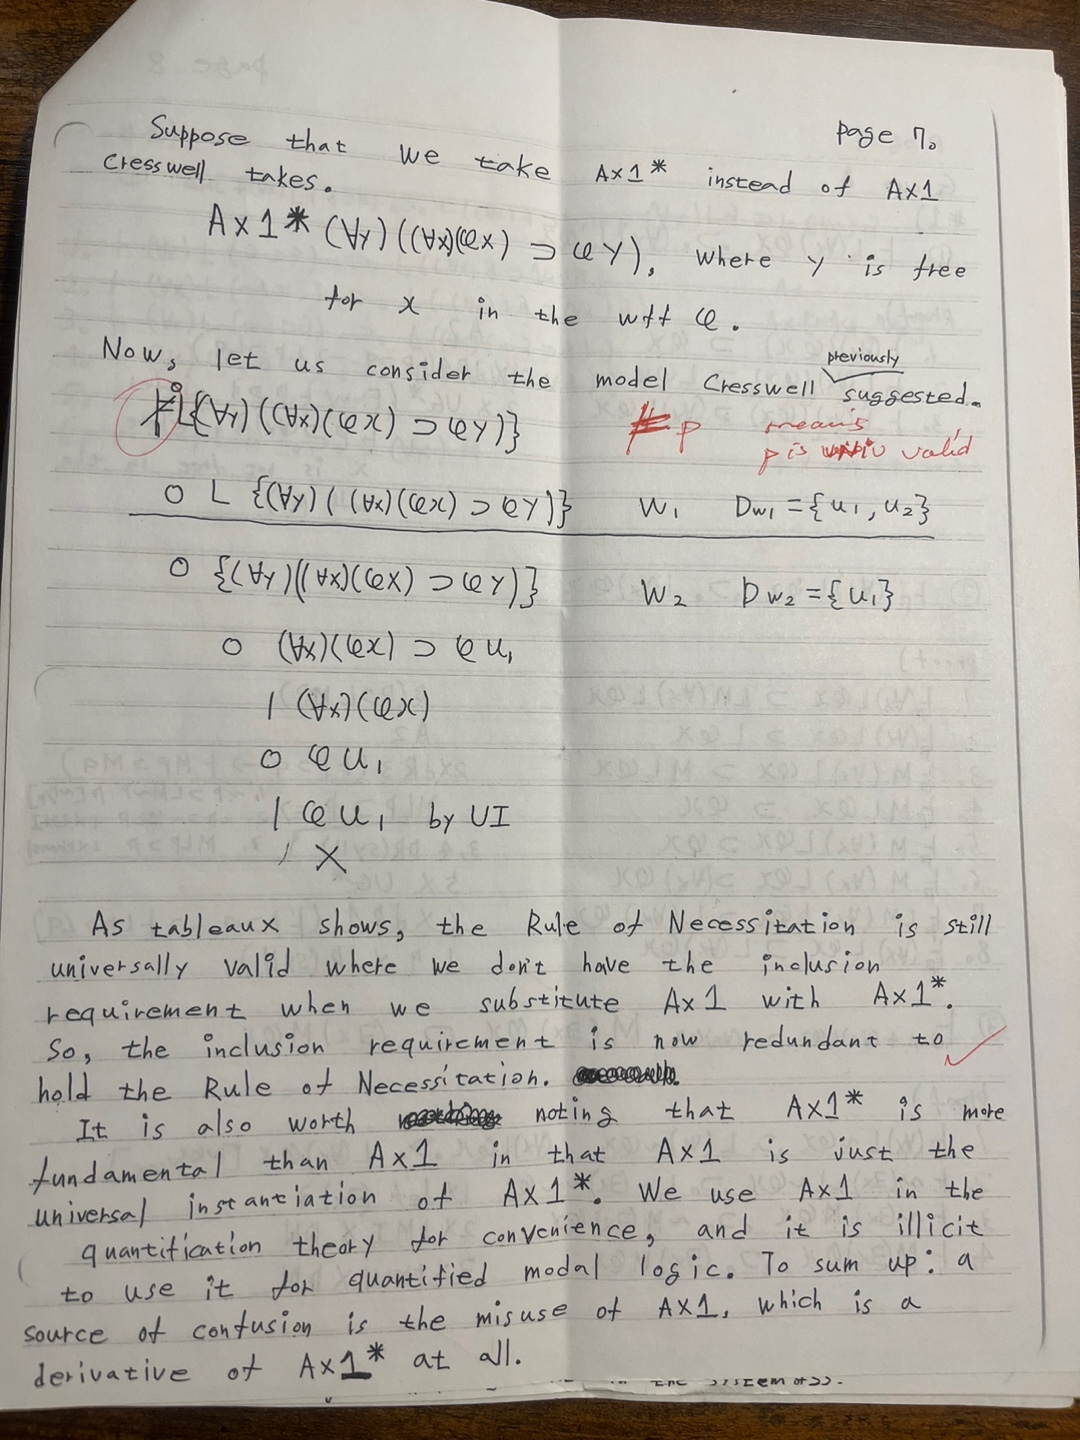 page 7.
Suppose that we take Ax1* instead of Ax1
Cresswell takes.
Ax1* (∀y)((∀x)(φx) ⊃ φy), where y is free
for x in the wff φ.
Now, let us consider the model Cresswell previously suggested.
⊭ L{(∀y)((∀x)(φx) ⊃ φy)}
⊭ p means
p is valid
0 L {(∀y)((∀x)(φx) ⊃ φy)} W1 Dw1 = {u1, u2}
0 {(∀y)((∀x)(φx) ⊃ φy)} W2 Dw2 = {u1}
0 (∀x)(φx) ⊃ φu1
1 (∀x)(φx)
0 φu1
1 φu1 by UI
X
As tableaux shows, the Rule of Necessitation is still
universally valid where we don't have the inclusion
requirement when we substitute Ax1 with Ax1*.
So, the inclusion requirement is now redundant to
hold the Rule of Necessitation.
It is also worth noting that Ax1* is more
fundamental than Ax1 in that Ax1 is just the
universal instantiation of Ax1*. We use Ax1 in the
quantification theory for convenience, and it is illicit
to use it for quantified modal logic. To sum up: a
source of confusion is the misuse of Ax1, which is a
derivative of Ax1* at all.